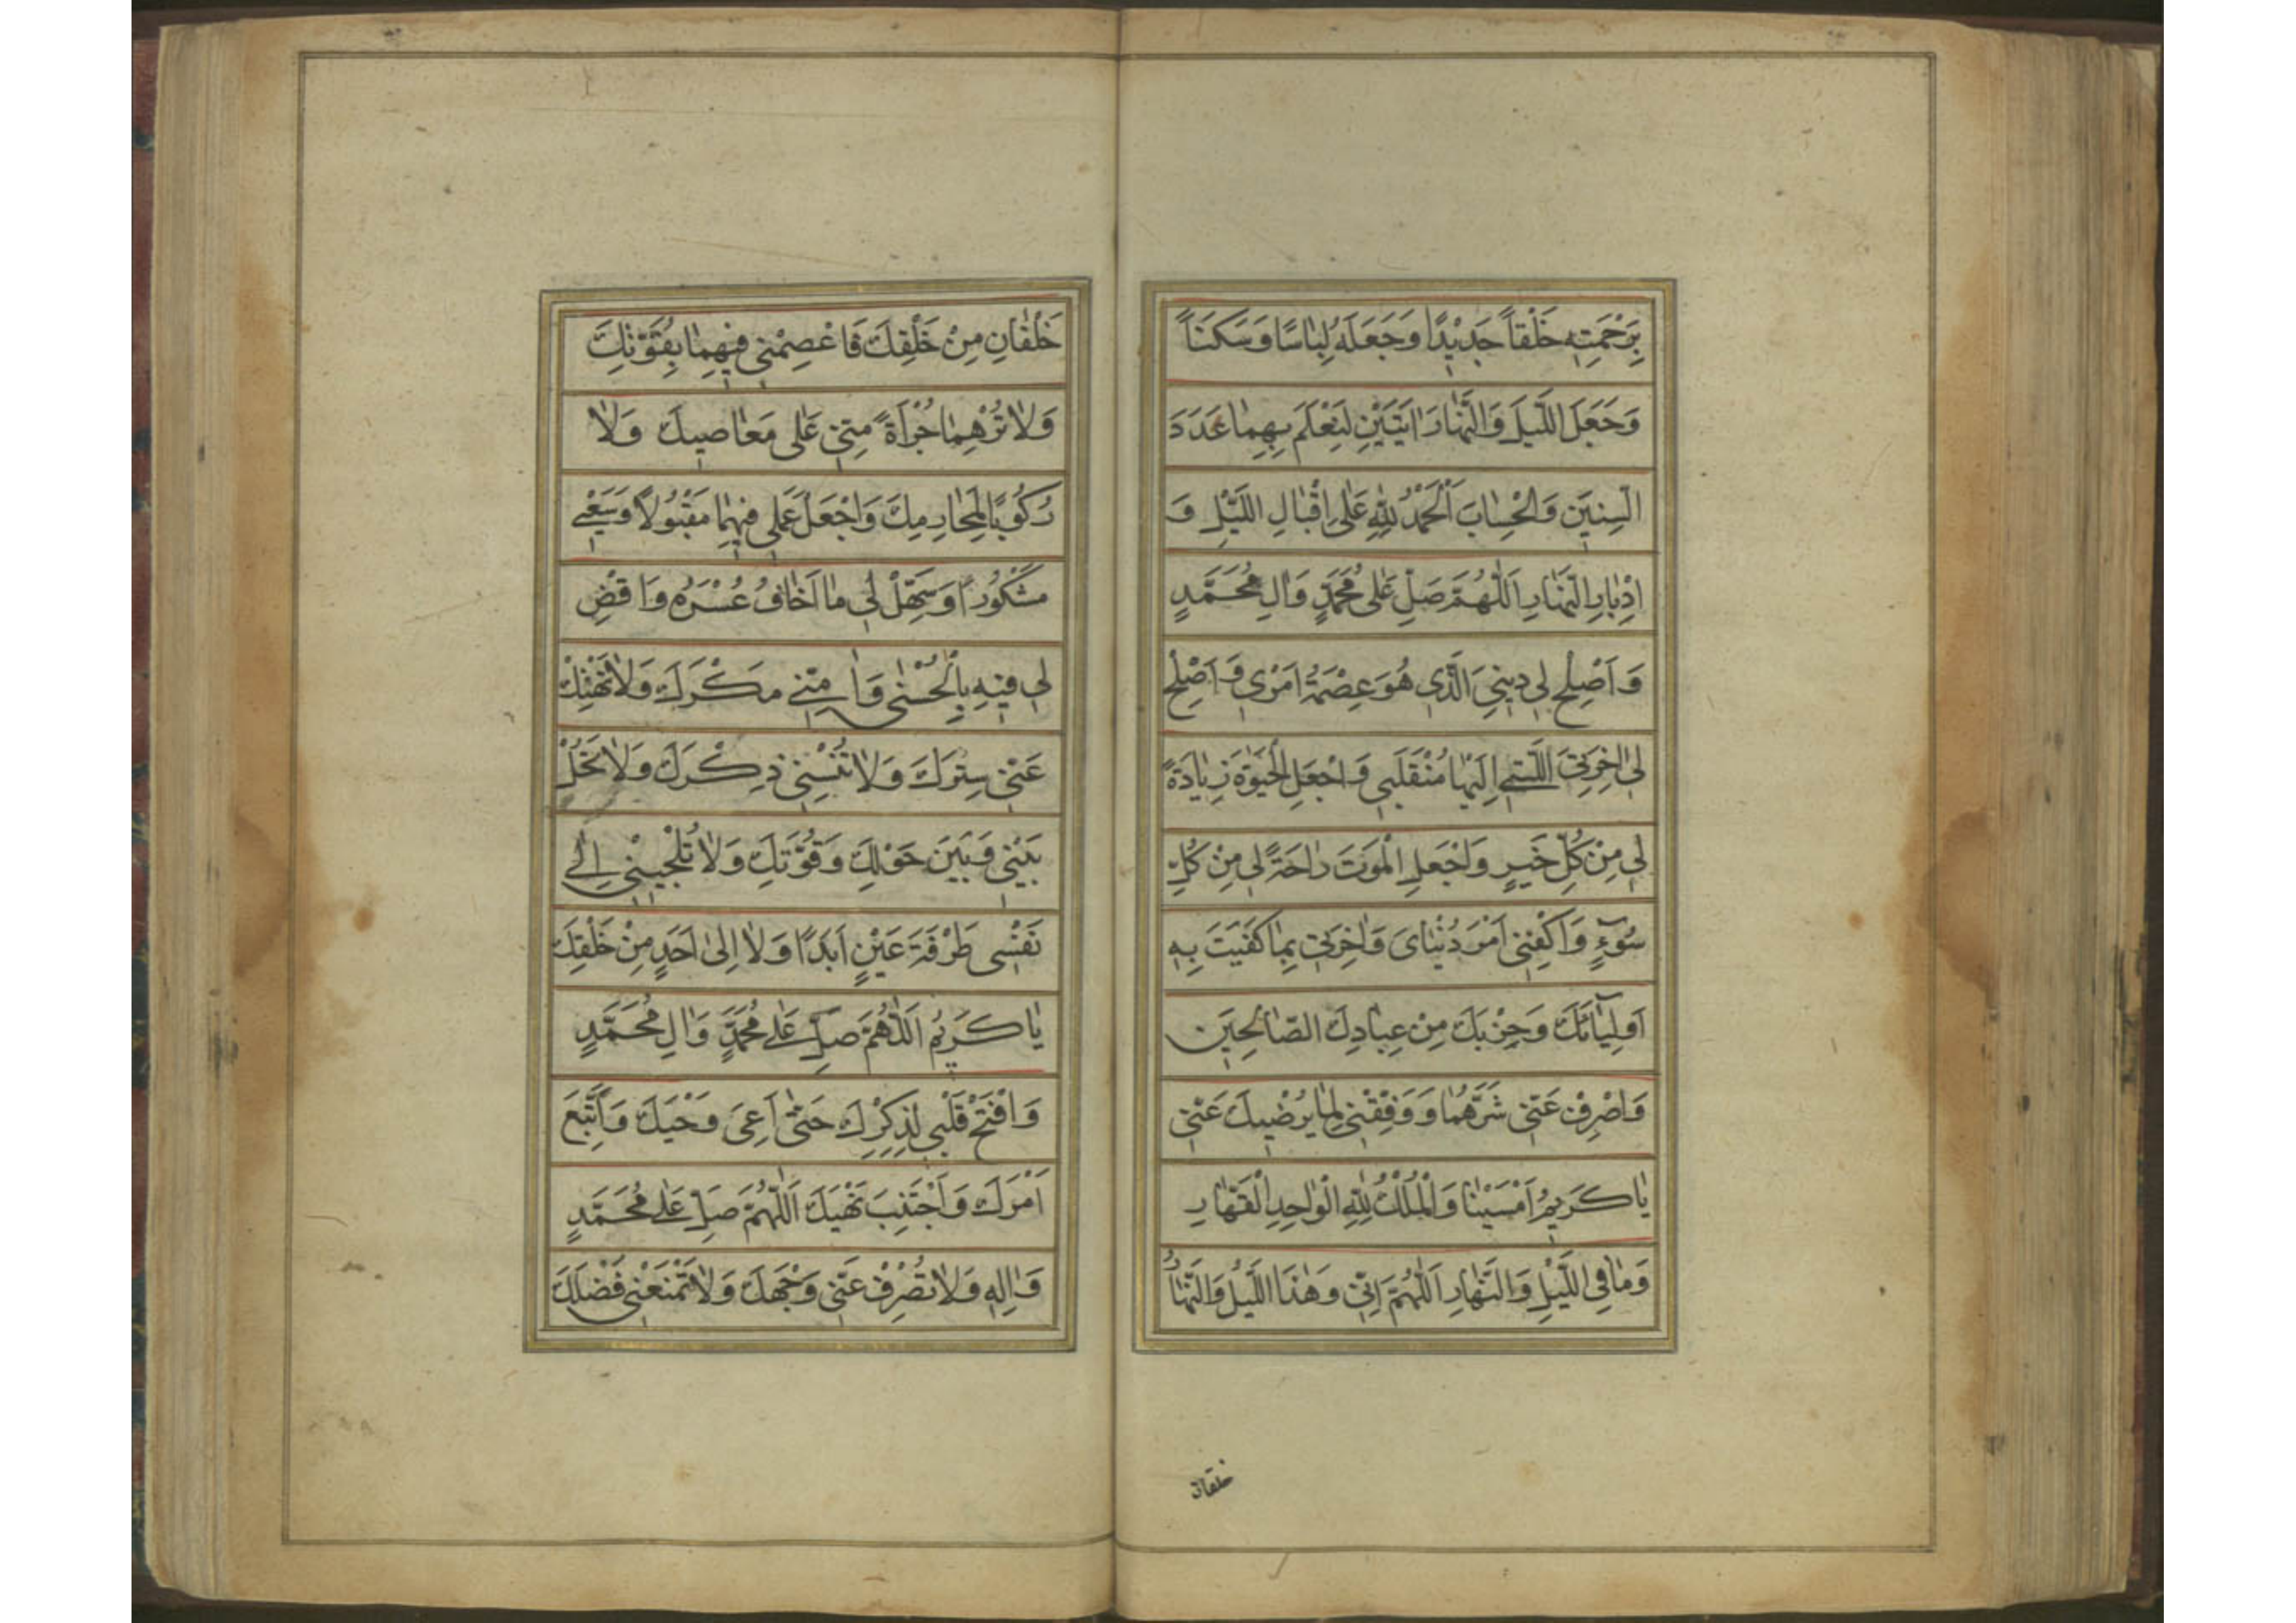 بِرَحْمَتِهِ خَلْقاً جَدِيْدًا وَجَعَلَهُ لِبٰاسًا وَسَكَنَاً
وَجَعَلَ اللَّيلَ وَالنَّهٰارَ اٰيَتَيْنِ لِيُعْلَمَ بِهِمٰا عَدَدَ
السِّنِيَن وَالْحِسٰابَ اَلْحَمْدُ لِلّٰهِ عَلٰى اِقْبٰالِ اللَّيْلِ وَ
اِدْبٰارِ النَّهٰارِ اَللّٰهُمَّ صَلِّ عَلٰى مُحَمَّدٍ وَاٰلِ مُحَمَّدٍ
وَ اَصْلِحْ لِي دِينِيَ الَّذِى هُوَ عِصْمَةُ اَمْرِي وَ اَصْلِحْ
لِي اٰخِرَتِيَ الَّتِي اِلَيْهٰا مُنْقَلَبِي وَ اجْعَلِ الْحَيٰوةَ زِيٰادَةً
لِي مِنْ كُلِّ خَيرٍ وَاجْعَلِ الْمَوتَ رٰاحَةً لِي مِنْ كُلِّ
سُوٓءٍ وَاكْفِنِي اَمْرَ دُنْيٰاىَ وَاٰخِرَتِي بِمٰا كَفَيتَ بِهِ
اَولِيٰآئَكَ وَحِزْبَكَ مِنْ عِبٰادِكَ الصّٰالِحِيَن
وَاصْرِفْ عَنّي شَرَّهُمٰا وَوَفِّقْنِي لِمٰا يُرْضِيكَ عَنّي
يٰا كَرِيمُ اَمْسَيْنٰا وَالْمُلْكُ لِلّٰهِ الْوٰاحِدِ الْقَهّٰارِ
وَمٰا فِي اللَّيْلِ وَالنَّهٰارِ اَللّٰهُمَّ اِنّي وَهٰذَا اللَّيْلُ وَالنَّهٰارُ
خلقان
خَلْقٰانِ مِنْ خَلْقِكَ فَاعْصِمْنِي فِيهِمٰا بِقُوَّتِكَ
وَلٰا تُرْهِمٰا جُرْأَةً مِنّي عَلٰى مَعٰاصِيكَ وَلٰا
رُكُوبًا لِمَحٰارِمِكَ وَاجْعَلْ عَمَلِي فِيهِمٰا مَقْبُولاً وَسَعْيِي
مَشْكُورًا وَسَهِّلْ لِي مٰا اَخٰافُ عُسْرَهُ وَاقْضِ
لِي فِيهِ بِالْحُسْنٰى وَاٰمِنّي مَكْرَكَ وَلٰا تَهْتِكْ
عَنّي سِتْرَكَ وَلٰا تُنْسِنِي ذِكْرَكَ وَلٰا تَحُلْ
بَيْنِي وَبَيْنَ حَوْلِكَ وَقُوَّتِكَ وَلٰا تُلْجِئْنِي اِلٰى
نَفْسِى طَرْفَةَ عَيْنٍ اَبَدًا وَلٰا اِلٰى اَحَدٍ مِنْ خَلْقِكَ
يٰا كَرِيمُ اَللّٰهُمَّ صَلِّ عَلٰى مُحَمَّدٍ وَاٰلِ مُحَمَّدٍ
وَافْتَحْ قَلْبِي لِذِكْرِكَ حَتّٰى اَعِيَ وَحْيَكَ وَاَتَّبِعَ
اَمْرَكَ وَاَجْتَنِبَ نَهْيَكَ اَللّٰهُمَّ صَلِّ عَلٰى مُحَمَّدٍ
وَاٰلِهِ وَلٰا تَصْرِفْ عَنّي وَجْهَكَ وَلٰا تَمْنَعْنِي فَضْلَكَ